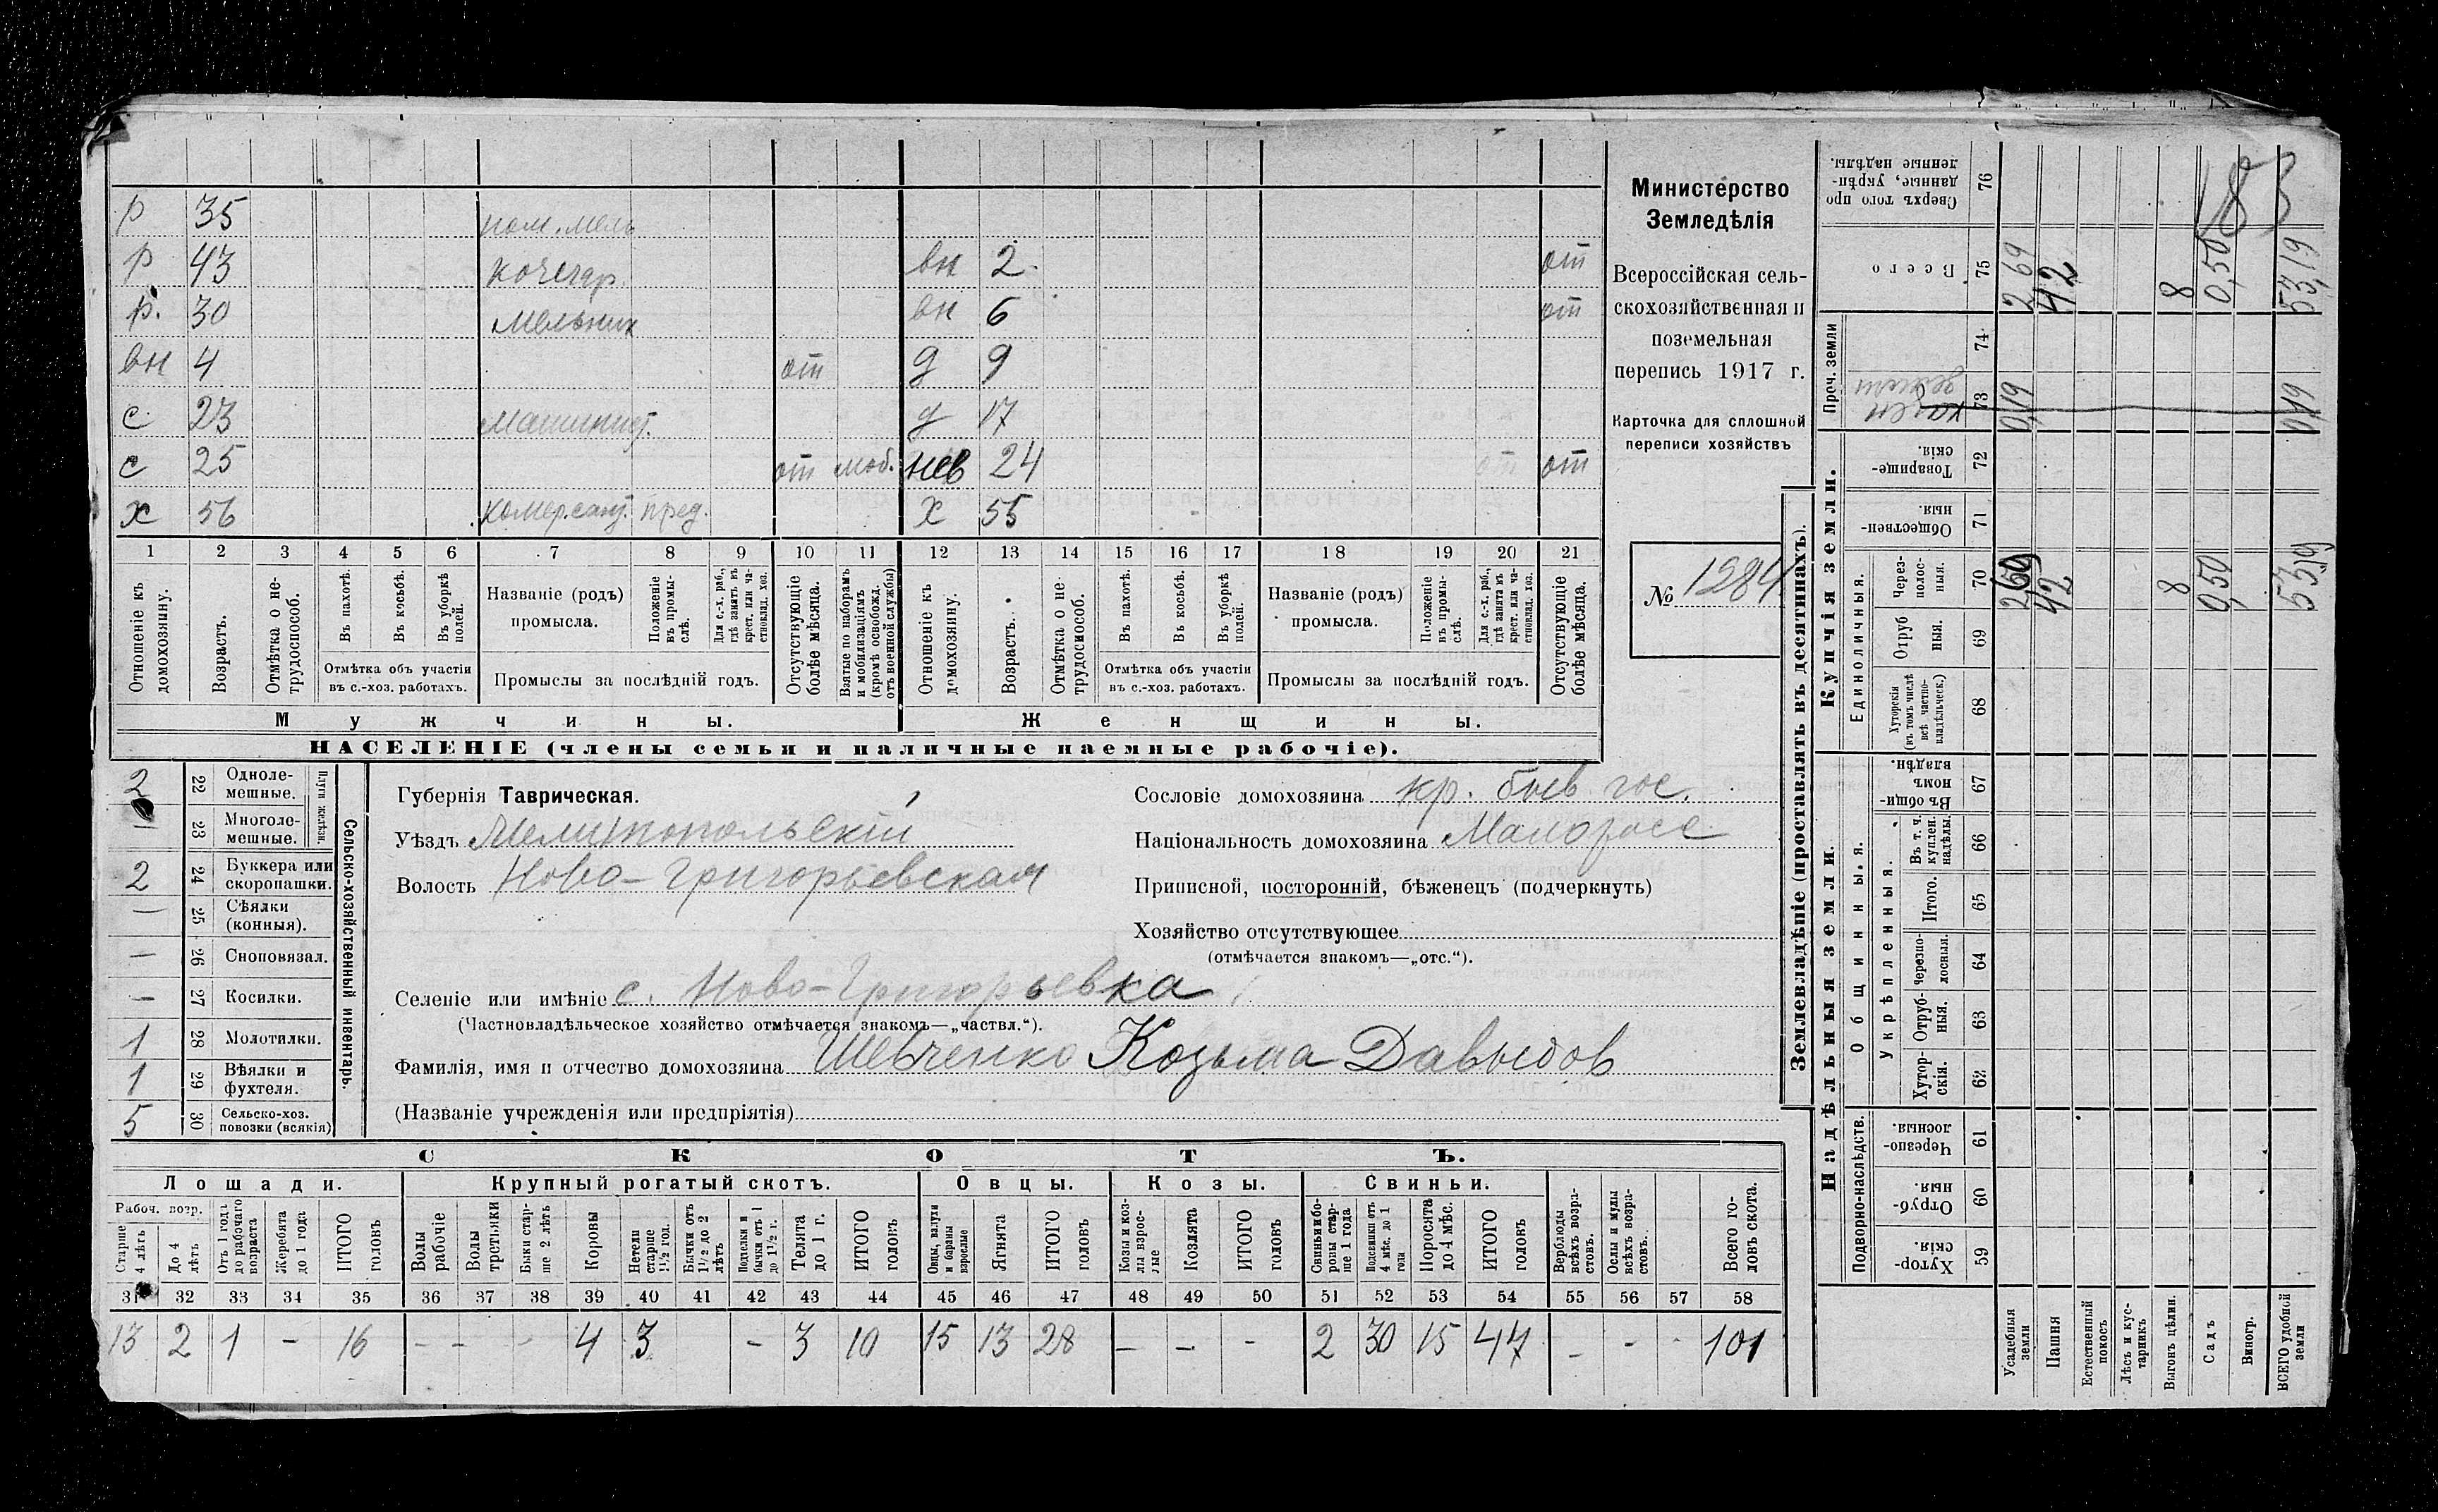 р 35 пом. мель
р 43 кочегар. вн 2 от
р. 30 мельник вн 6 от
вн 4 от д 9
с 23 машинист. д 17
с 25 от моб. нев 24 от от
х 56 комерсант. пред. х 55
1 2 3 4 5 6 7 8 9 10 11 12 13 14 15 16 17 18 19 20 21
Отношеніе къ домохозяину.
Возрастъ.
Отмѣтка о нетрудоспособ.
Въ пахотѣ.
Въ косьбѣ.
Въ уборкѣ полей.
Отмѣтка объ участіи въ с.-хоз. работахъ.
Названіе (родъ) промысла.
Положеніе въ промыслѣ.
Для с.-х. раб., гдѣ занятъ въ крест. или частновлад. хоз.
Промыслы за послѣдній годъ.
Отсутствующіе болѣе мѣсяца.
Взятые по наборамъ и мобилизаціямъ (кромѣ освобожд. отъ военной службы)
Отношеніе къ домохозяину.
Возрастъ.
Отмѣтка о нетрудоспособ.
Въ пахотѣ.
Въ косьбѣ.
Въ уборкѣ полей.
Отмѣтка объ участіи въ с.-хоз. работахъ.
Названіе (родъ) промысла.
Положеніе въ промыслѣ.
Для с.-х. раб., гдѣ занята въ крест. или частновлад. хоз.
Промыслы за послѣдній годъ.
Отсутствующіе болѣе мѣсяца.
Мужчины. Женщины.
НАСЕЛЕНІЕ (члены семьи и наличные наемные рабочіе).
Министерство
Земледѣлія
Всероссійская сель-
скохозяйственная и
поземельная
перепись 1917 г.
Карточка для сплошной
переписи хозяйствъ
№ 1284
2 22 Однолемешные.
— 23 Многолемешные.
Плуги желѣзн.
2 24 Буккера или скоропашки.
— 25 Сѣялки (конныя).
— 26 Сноповязал.
— 27 Косилки.
1 28 Молотилки.
1 29 Вѣялки и фухтеля.
5 30 Сельско-хоз. повозки (всякія)
Сельско-хозяйственный инвентарь.
Губернія Таврическая.
Уѣздъ Мелитопольскій
Волость Ново-Григорьевская
Сословіе домохозяина кр. быв. гос.
Національность домохозяина Малоросс
Приписной, посторонній, бѣженецъ (подчеркнуть)
Хозяйство отсутствующее
(отмѣчается знакомъ—„отс.“).
Селеніе или имѣніе с. Ново-Григорьевка
(Частновладѣльческое хозяйство отмѣчается знакомъ—„частвл.“).
Фамилія, имя и отчество домохозяина Шевченко Козьма Давыдов
(Названіе учрежденія или предпріятія)
СКОТЪ.
Лошади. Крупный рогатый скотъ. Овцы. Козы. Свиньи.
Рабоч. возр.
Старше 4 лѣтъ
До 4 лѣтъ
Отъ 1 года до рабочаго возраста
Жеребята до 1 года
ИТОГО головъ
Волы рабочіе
Волы третьяки
Быки старше 2 лѣтъ
Коровы
Нетели старше 1½ год.
Бычки отъ 1½ до 2 лѣтъ
Подтелки и бычки отъ 1 до 1½ г.
Телята до 1 г.
ИТОГО головъ
Овцы, валухи и бараны взрослые
Ягнята
ИТОГО головъ
Козы и козлы взрослые
Козлята
ИТОГО головъ
Свиньи и боровы старше 1 года
Подсвинки отъ 4 мѣс. до 1 года
Поросята до 4 мѣс.
ИТОГО головъ
Верблюды всѣхъ возрастовъ.
Ослы и мулы всѣхъ возрастовъ.
Всего головъ скота.
31 32 33 34 35 36 37 38 39 40 41 42 43 44 45 46 47 48 49 50 51 52 53 54 55 56 57 58
13 2 1 - 16 - - - 4 3 - 3 10 15 13 28 — - - 2 30 15 47 - - - 101
Землевладѣніе (проставлять въ десятинахъ).
Надѣльныя земли. Купчія земли. Проч. земли
Подворно-наслѣдств. Общинныя. Укрѣпленныя. Единоличныя.
Хуторскія. 59
Отрубныя. 60
Черезполосныя. 61
Хуторскія. 62
Отрубныя. 63
Черезполосныя. 64
Итого. 65
Въ т. ч. куплен. надѣлы. 66
Въ общинномъ владѣн. 67
Хуторскія (въ томъ числѣ всѣ частновладѣльческ.) 68
Отрубныя. 69
Черезполосныя. 70
Общественныя. 71
Товарищескія. 72
73
74
Всего 75
Сверхъ того проданные, укрѣпленные надѣлы. 76
Усадебныя земли 0,19 2 69
Пашня 42 42
Естественный покосъ
Лѣсъ и кустарникъ
Выгонъ цѣлин. 8 8
Садъ 0,50 0,50
Виногр.
ВСЕГО удобной земли 53,19 0,19 53,19